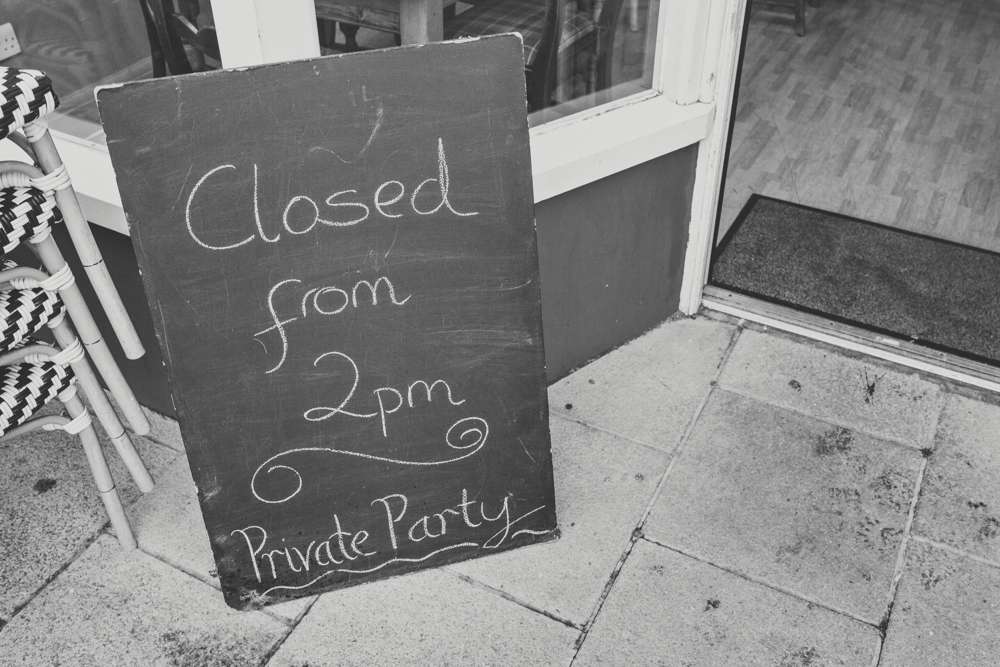 Closed
from
2pm
Private Party